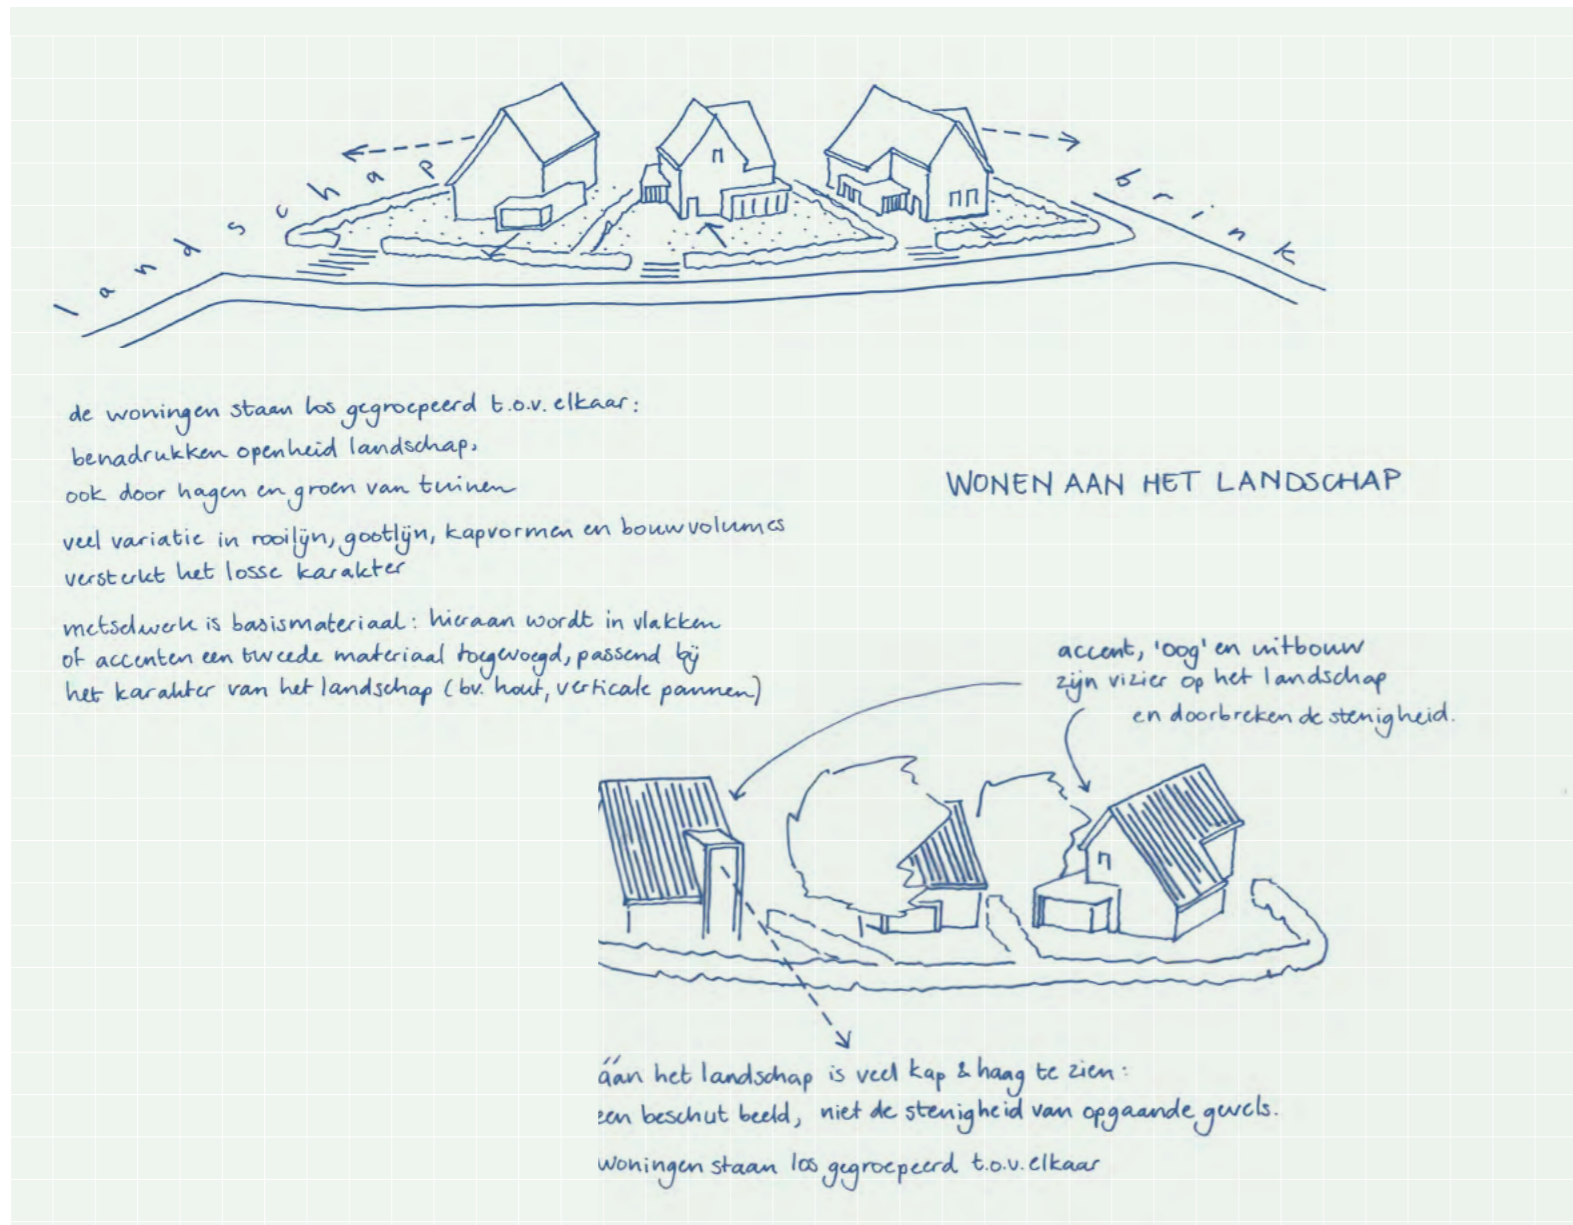 landschap
brink
de woningen staan los gegroepeerd t.o.v. elkaar:
benadrukken openheid landschap,
ook door hagen en groen van tuinen
veel variatie in rooilijn, gootlijn, kapvormen en bouwvolumes
versterkt het losse karakter
metselwerk is basismateriaal: hieraan wordt in vlakken
of accenten een tweede materiaal toegevoegd, passend bij
het karakter van het landschap (bv. hout, verticale pannen)
WONEN AAN HET LANDSCHAP
accent, 'oog' en uitbouw
zijn vizier op het landschap
en doorbreken de stenigheid.
áán het landschap is veel kap & haag te zien:
een beschut beeld, niet de stenigheid van opgaande gevels.
woningen staan los gegroepeerd t.o.v. elkaar